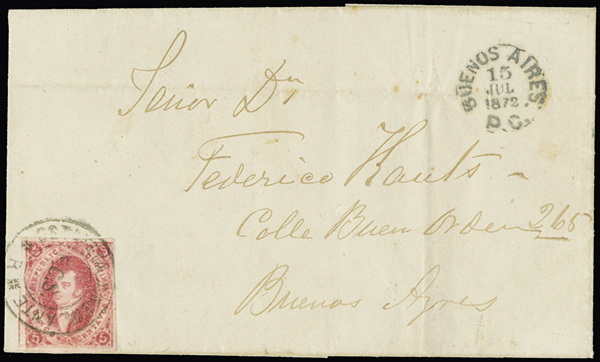 BUENOS AIRES
15
JUL
1872
P.O.
Señor Dn
Federico Kauts
Calle Buen Orden 265
Buenos Ayres
REPUBLICA
5 CENTAVOS 5